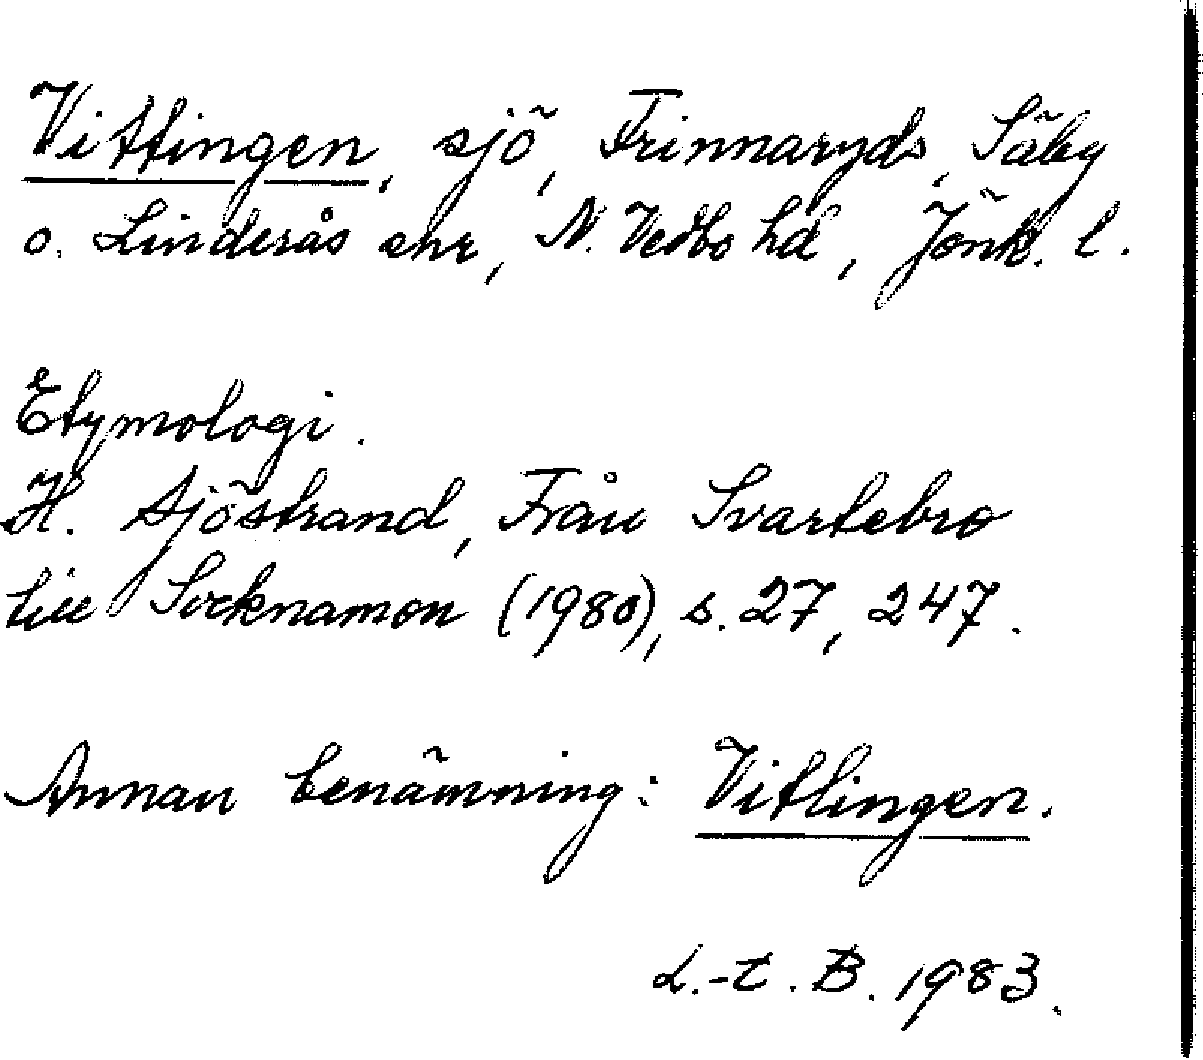 Vittingen, sjö, Frinnaryds, Säby
o. Linderås snr, N. Vedbo hd, Jönk. l.
Etymologi.
H. Sjöstrand, Från Svartebro
till Socknamon (1980), s. 27, 247.
Annan benämning: Vitlingen.
L.-E. B. 1983.